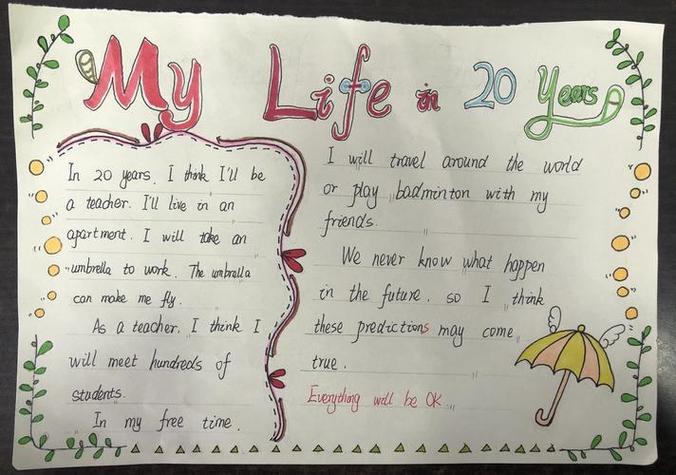 My Life in 20 Years
In 20 years. I think I'll be
a teacher. I'll live in an
apartment. I will take an
umbrella to work. The umbrella
can make me fly.
As a teacher. I think I
will meet hundreds of
students.
In my free time.
I will travel around the world
or play badminton with my
friends.
We never know what happen
in the future. so I think
these predictions may come
true.
Everything will be OK...